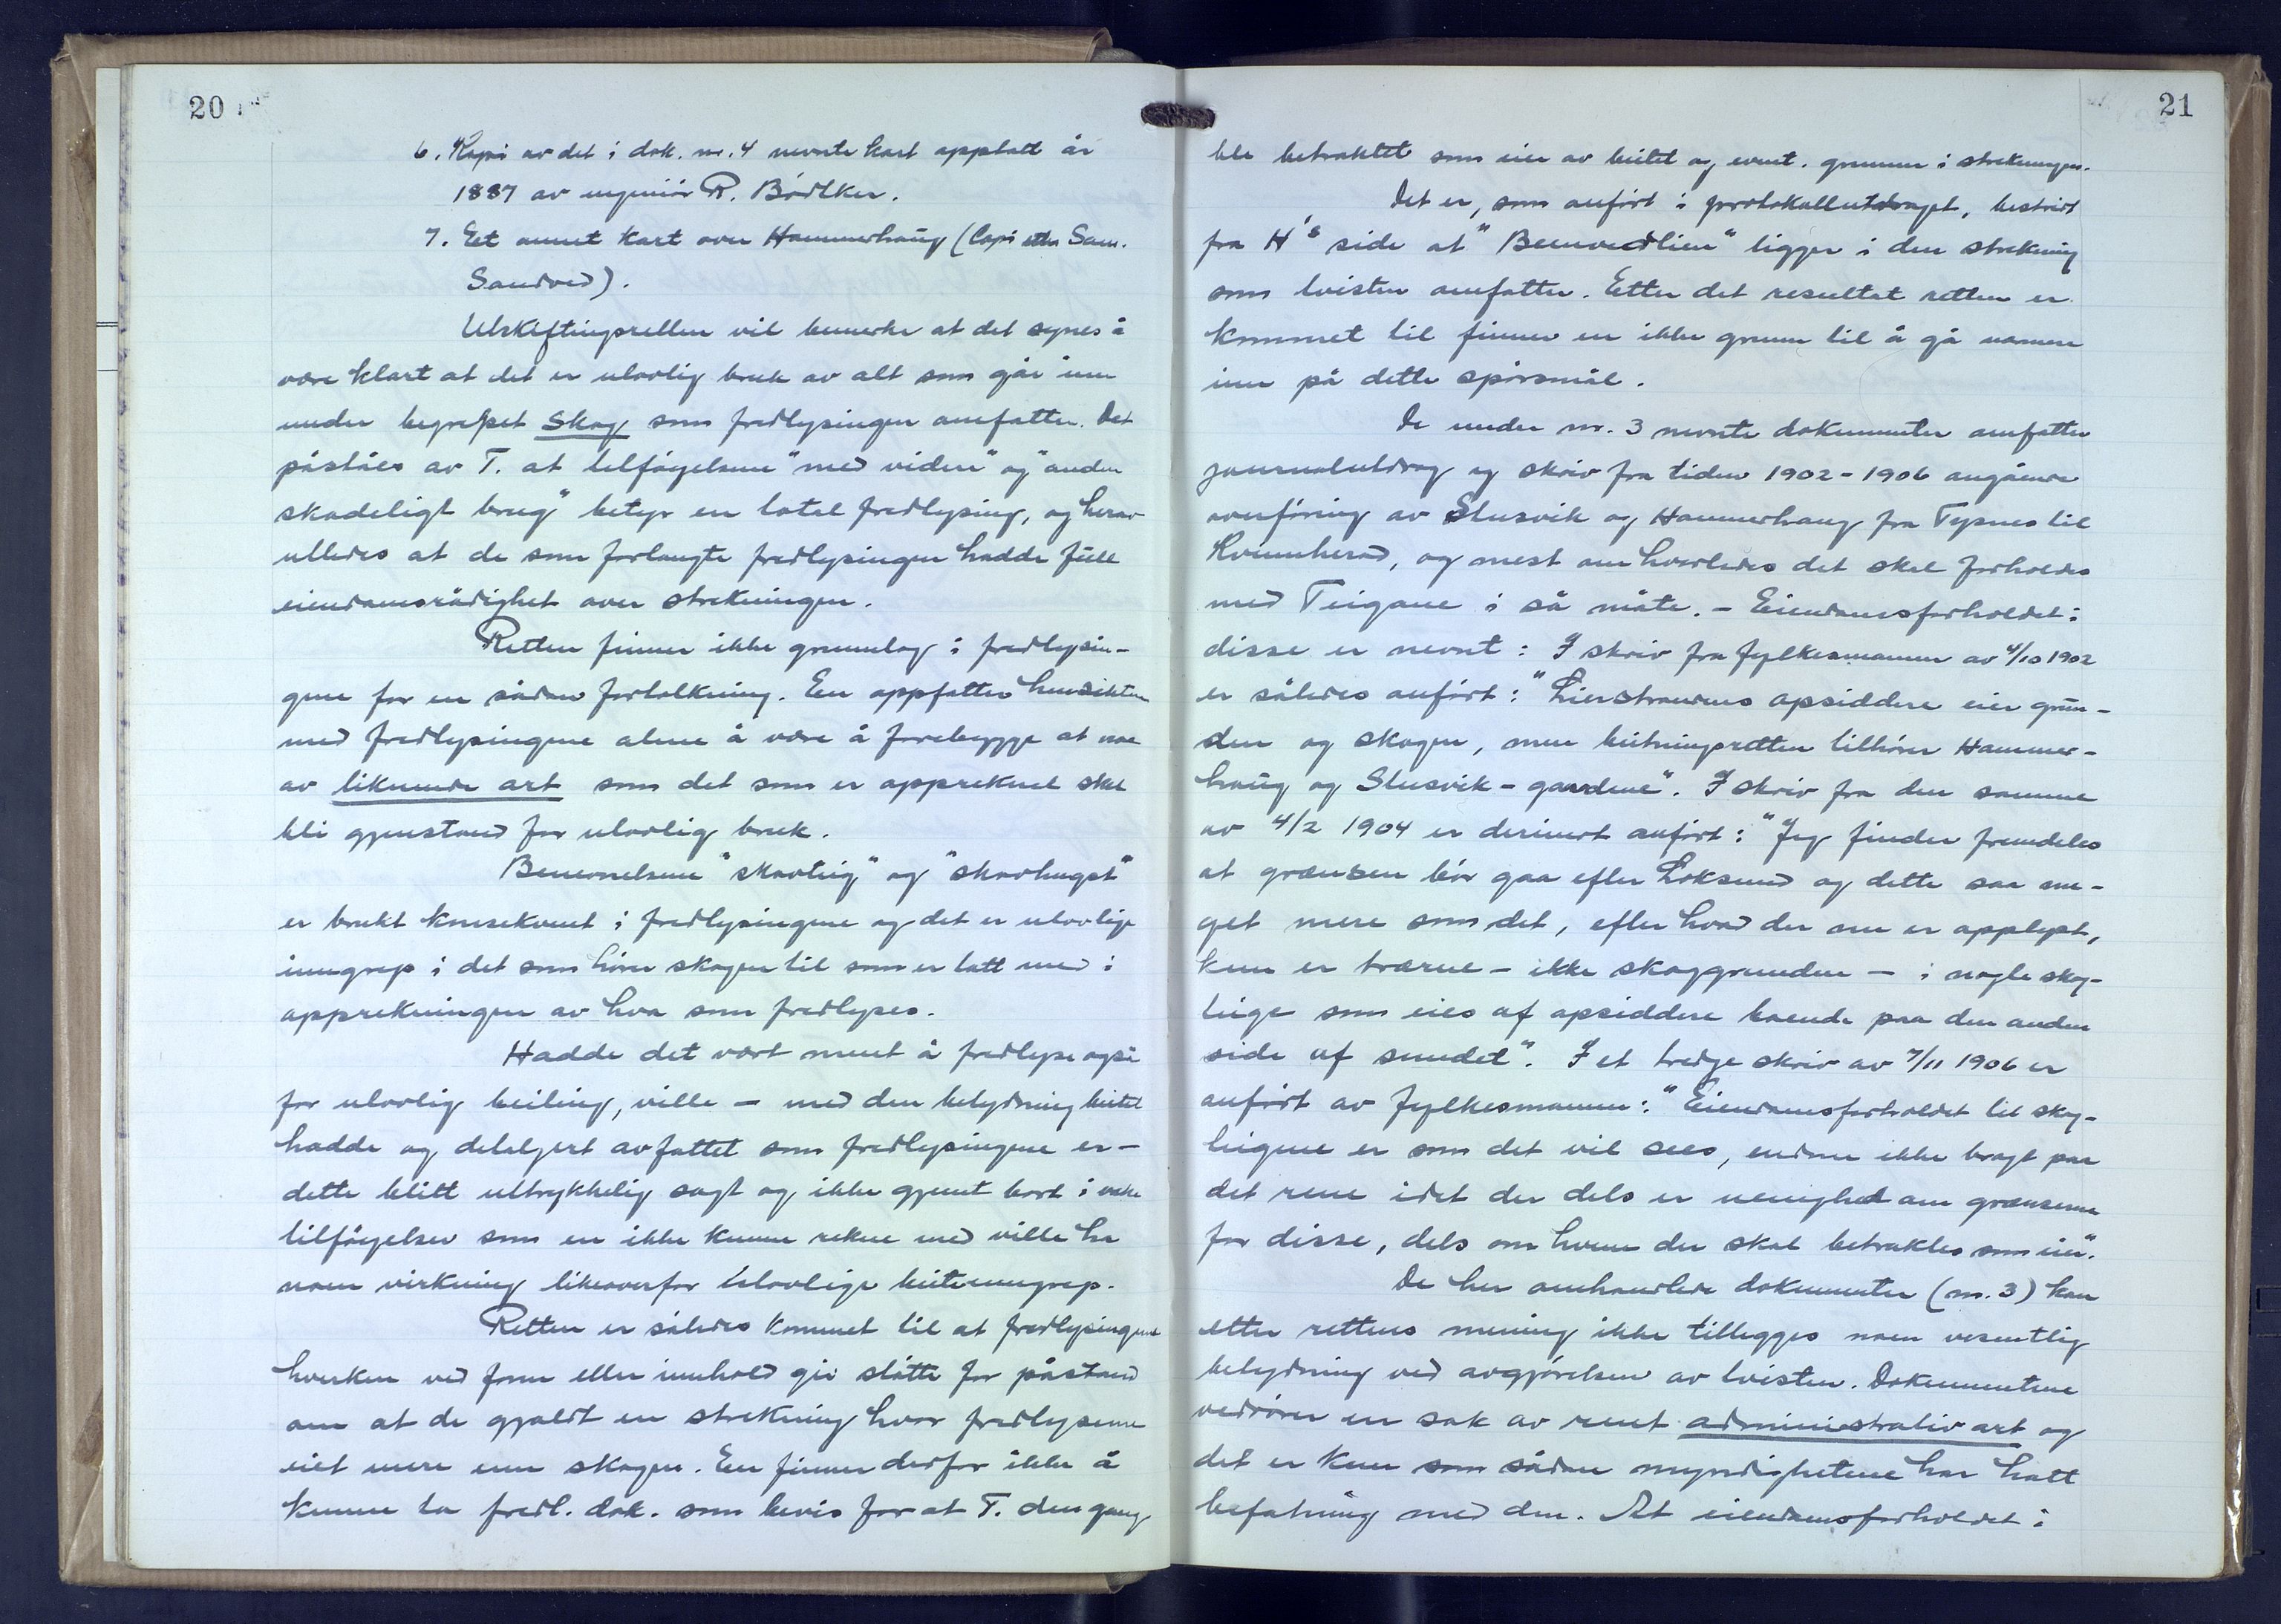 20
6. Kopi av det i dok. nr. 4 nevnte kart opptatt år
1887 av ingeniör R. Bödtker.
7. Eet annet kart over Hammerhaug (Copi etter Sam.
Sandved).
Utskiftingsretten vil bemerke at det synes å
være klart at det er ulovlig bruk av alt som går inn
under begrepet skog som fredlysingen omfatter. Det
påståes av T. at tilföyelsene "med videre" og "anden
skadeligt brug" betyr en total fredlysing, og herav
utledes at de som forlangte fredlysingen hadde full
eiendomsrådighet over strekningen.
Retten finner ikke grunnlag i fredlysin-
gene for en sådan fortolkning. En oppfatter hensikten
med fredlysingene alene å være å forebygge at noe
av liknende art som det som er oppreknet skal
bli gjenstand for ulovlig bruk.
Benevnelsene "skovteig" og "skovhugst"
er brukt konsekvent i fredlysingene og det er ulovlige
inngrep i det som hörer skogen til som er tatt med i
opprekningen av hva som fredlyses.
Hadde det vært ment å fredlyse også
for ulovlig beiting, ville - med den betydning beitet
hadde og detaljert avfattet som fredlysingene er -
dette blitt uttrykkelig sagt og ikke gjemt bort i
tilföyelser som en ikke kunne rekne med ville ha
noen virkning likeoverfor ulovlige beiteinngrep.
Retten er således kommet til at fredlysingene
hverken ved form eller innhold gir stötte for påstand
om at de gjaldt en strekning hvor fredlyserne
eiet mere enn skogen. En finner derfor ikke å
kunne ta fredl. dok. som bevis for at T. den gang
21
ble betraktet som eier av beitet og event. grunnen i strekningen.
Det er, som anfört i protokollutdraget, bestridt
fra H's side at "Beenvedlien" ligger i den strekning
som tvisten omfatter. Etter det resultat retten er
kommet til finner en ikke grunn til å gå nærmere
inn på dette spörsmål.
De under nr. 3 nevnte dokumenter omfatter
journalutdrag og skriv fra tiden 1902 - 1906 angående
overföring av Slusvik og Hammerhaug fra Tysnes til
Kvinnherad, og mest om hvorledes det skal forholdes
med Teigane i så måte. - Eiendomsforholdet i
disse er nevnt: I skriv fra fylkesmannen av 4/10 1902
er således anfört: "Lierstrandens opsiddere eier grun-
den og skogen, men beitningsretten tilhörer Hammer-
haug og Slusvik - gaardene". I skriv fra den samme
av 4/2 1904 er derimot anfört: "Jeg finder fremdeles
at grænsen bör gaa efter Loksund og dette saa me-
get mere som det, efter hvad der nu er opplyst,
kun er trærne - ikke skoggrunden - i nogle skog-
teige som eies af opsiddere boende paa den anden
side af sundet". I et tredje skriv av 7/11 1906 er
anfört av fylkesmannen: "Eiendomsforholdet til skog-
teigene er som det vil sees, endnu ikke bragt paa
det rene idet der dels er uenighed om grænserne
for disse, dels om hvem der skal betraktes som eier".
De her omhandlede dokumenter (nr. 3) kan
etter rettens mening ikke tillegges noen vesentlig
betydning ved avgjörelsen av tvisten. Dokumentene
vedrörer en sak av rent administrativ art og
det er kun som sådan myndighetene har hatt
befatning med den. At eiendomsforholdet i